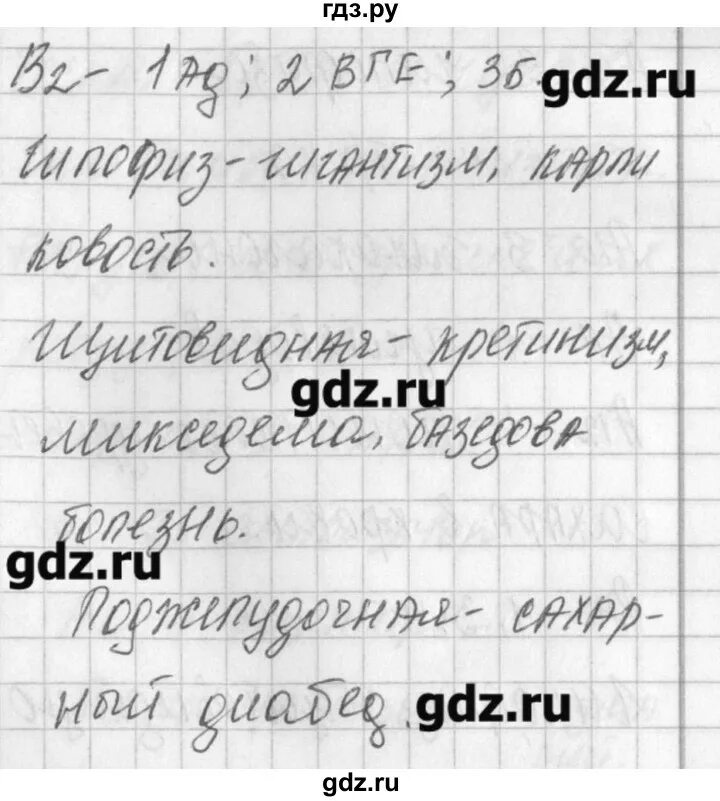 гдз.ру
В2 - 1 Ад; 2 ВГЕ; 3Б. gdz.ru
Гипофиз - гигантизм, карли
ковость.
Щитовидная - кретинизм,
gdz.ru
микседема, базедова
болезнь.
gdz.ru
Поджелудочная - сахар-
ный диабед. gdz.ru
gdz.ru